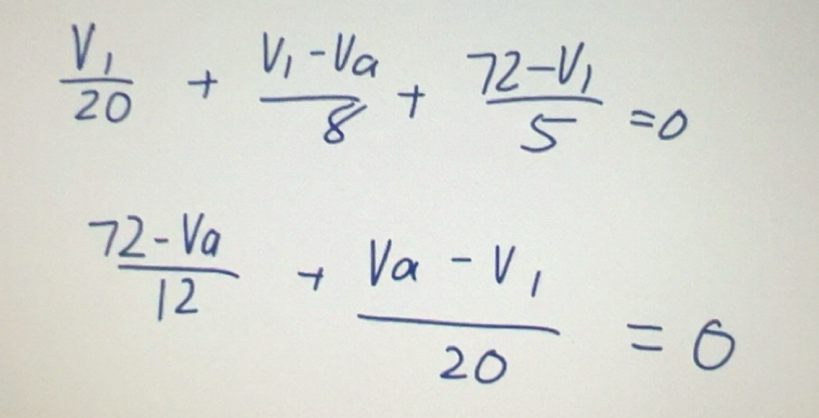 V₁/20 + V₁-Va/8 + 72-V₁/5 =0
72-Va/12 + Va-V₁/20 = 0